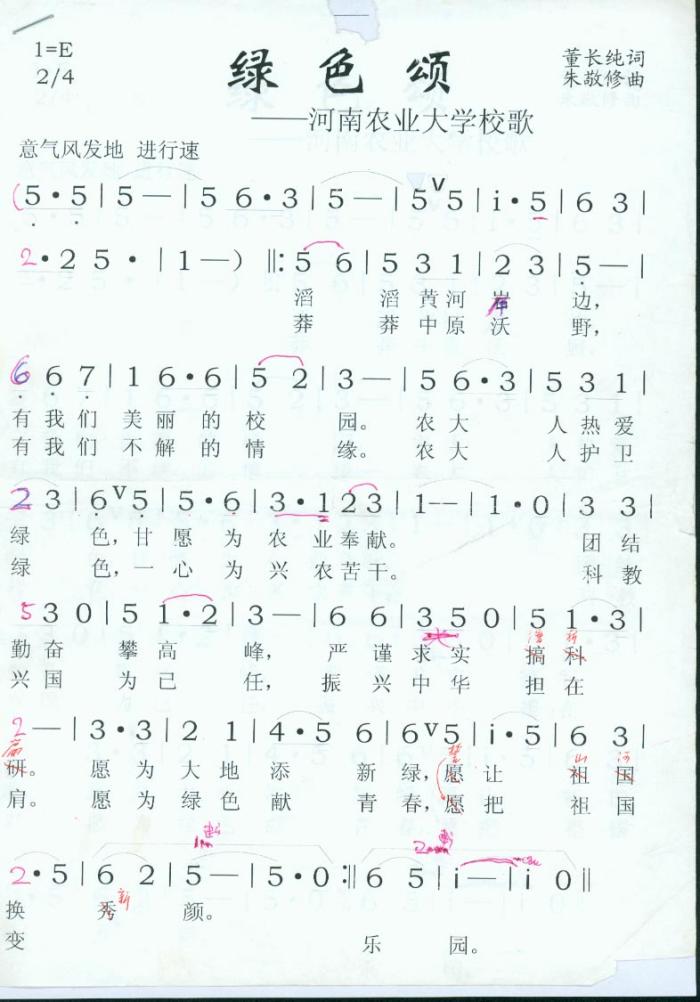 1=E
2/4
绿色颂
董长纯词
朱敬修曲
——河南农业大学校歌
意气风发地 进行速
(5·5|5—|5 6·3|5—|5ⱽ5|i·5|6 3|
2·2 5·|1—) ‖: 5 6|5 3 1|2 3|5—|
滔 滔黄河岸 边,
莽 莽中原沃 野,
6 6 7|1 6·6|5 2|3—|5 6·3|5 3 1|
有我们 美丽的校 园。 农大 人热爱
有我们 不解的情 缘。 农大 人护卫
2 3|6ⱽ5|5·6|3·1 2 3|1--|1·0|3 3|
绿 色,甘愿为农业奉献。 团结
绿 色,一心为兴农苦干。 科教
5 3 0|5 1·2|3—|6 6|3 5 0|5 1·3|
勤奋 攀高 峰, 严谨求实 搞科
兴国 为己 任, 振兴中华 担在
2—|3·3|2 1|4·5 6|6ⱽ5|i·5|6 3|
研。 愿为大地添 新绿,愿让 祖国
肩。 愿为绿色献 青春,愿把 祖国
山 河
2·5|6 2|5—|5·0:‖6 5|i—|i 0‖
换 秀 颜。
新
变 乐 园。